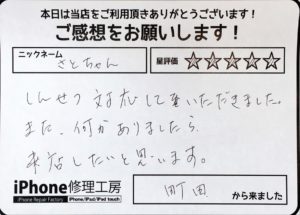 本日は当店をご利用頂きありがとうございます！
ご感想をお願いします！
ニックネーム さとちゃん 星評価 ☆☆☆☆☆
しんせつ 対応して頂いただきました。
また、何かありましたら
来店したいと思います。
iPhone修理工房
iPhone Repair Factory iPhone/iPad/iPad touch
町田 から来ました